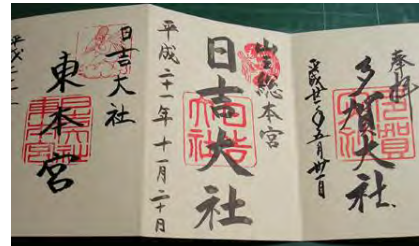 奉拝
多賀大社
平成廿一年五月廿一日
山王総本宮
日吉大社
平成二十一年十一月二十日
日吉大社
東本宮
平成二十一